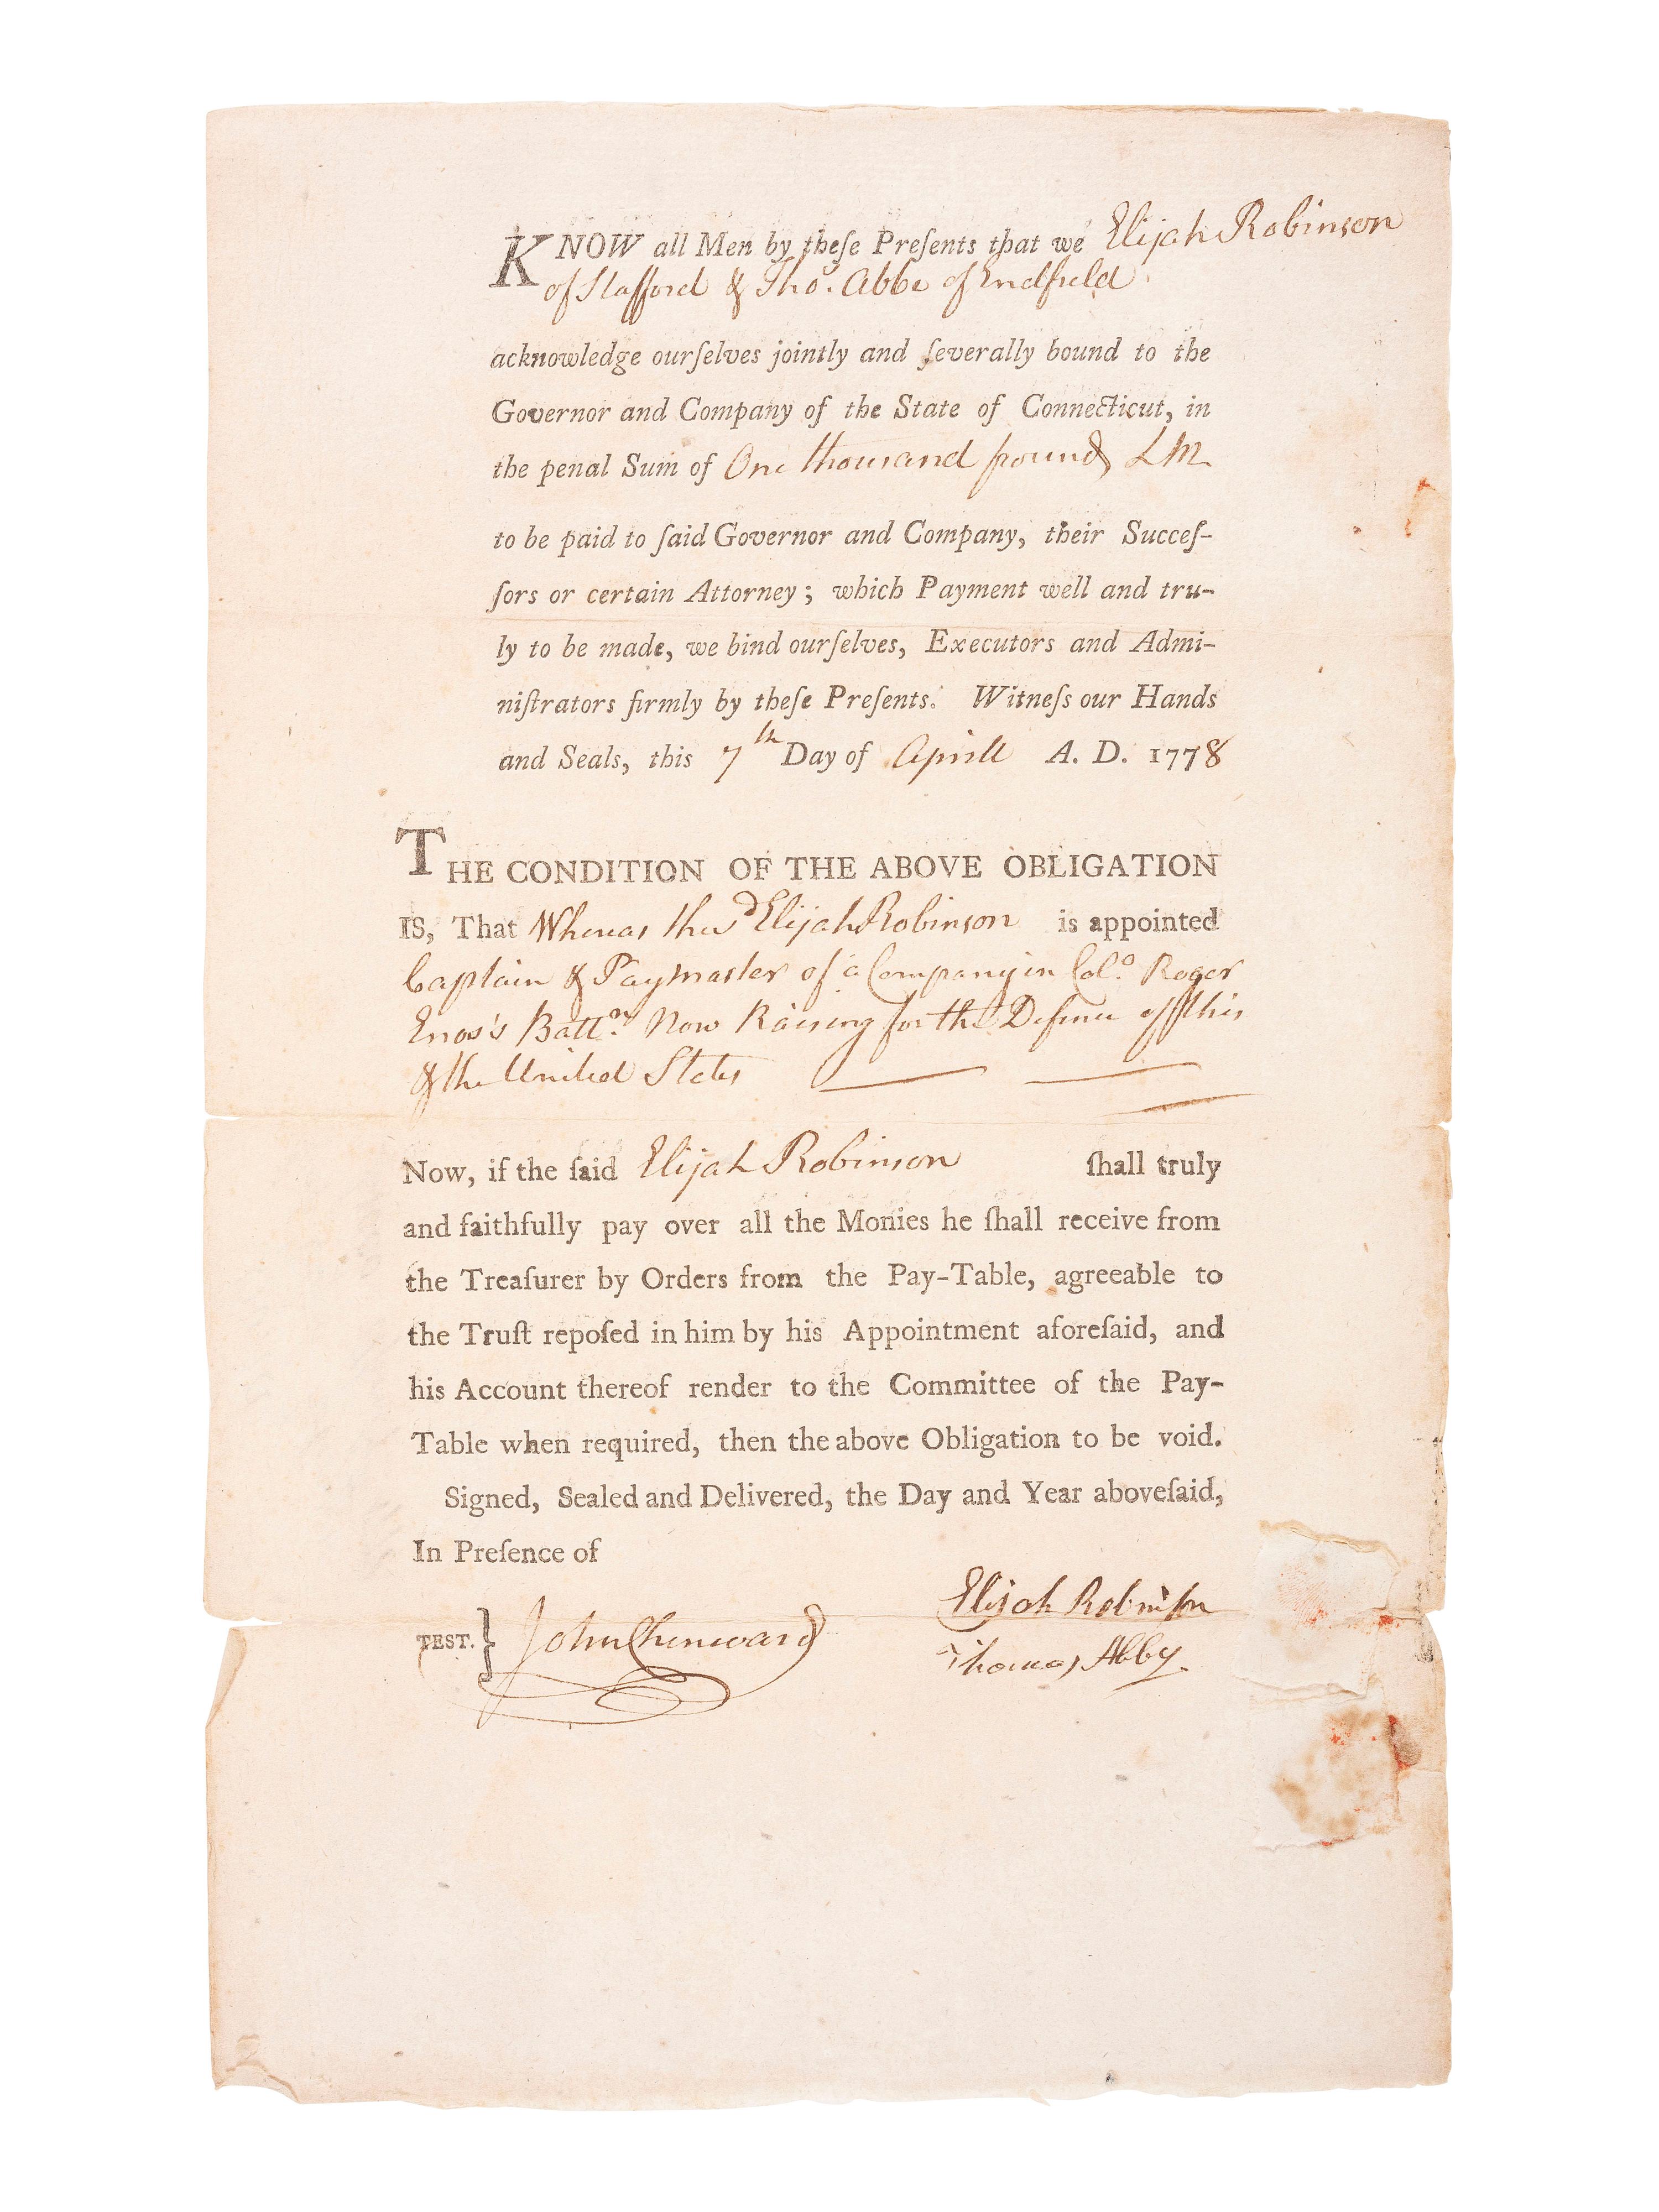 KNOW all Men by theſe Preſents that we Elijah Robinson
of Stafford & Tho.s Abbe of Endfield
acknowledge ourſelves jointly and ſeverally bound to the
Governor and Company of the State of Connecticut, in
the penal Sum of One thousand pounds LM
to be paid to ſaid Governor and Company, their Succeſ-
ſors or certain Attorney; which Payment well and tru-
ly to be made, we bind ourſelves, Executors and Admi-
niſtrators firmly by theſe Preſents. Witneſs our Hands
and Seals, this 7th Day of Aprill A. D. 1778
THE CONDITION OF THE ABOVE OBLIGATION
IS, That Whereas the sd Elijah Robinson is appointed
Captain & Paymaster of a Company in Colo. Roger
Enos's Battn. Now Raising for the Defence of this
& the United States
Now, if the ſaid Elijah Robinson ſhall truly
and faithfully pay over all the Monies he ſhall receive from
the Treaſurer by Orders from the Pay-Table, agreeable to
the Truſt repoſed in him by his Appointment aforeſaid, and
his Account thereof render to the Committee of the Pay-
Table when required, then the above Obligation to be void.
Signed, Sealed and Delivered, the Day and Year aboveſaid,
In Preſence of
Elijah Robinſon
TEST.} John Chenward
Thomas Abby